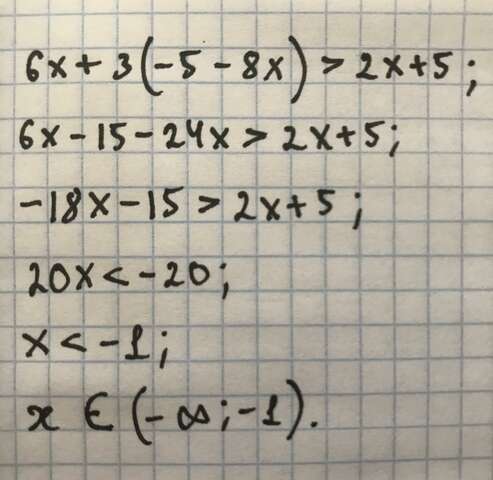 6x + 3(-5 - 8x) > 2x+5;
6x - 15 - 24x > 2x+5;
-18x - 15 > 2x+5;
20x < -20;
x < -1;
x ∈ (-∞; -1).